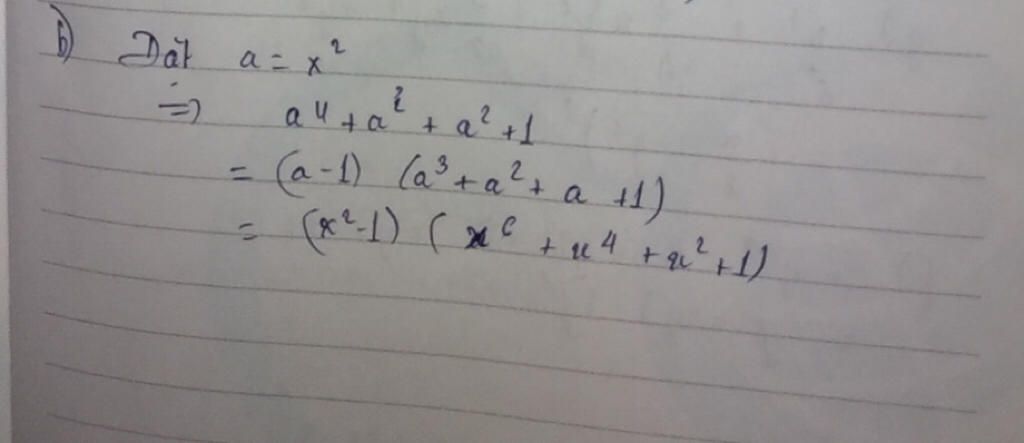 b) Đặt a = x²
=> a⁴ + a² + a² + 1
= (a - 1) (a³ + a² + a + 1)
= (x² - 1) (x⁶ + x⁴ + x² + 1)